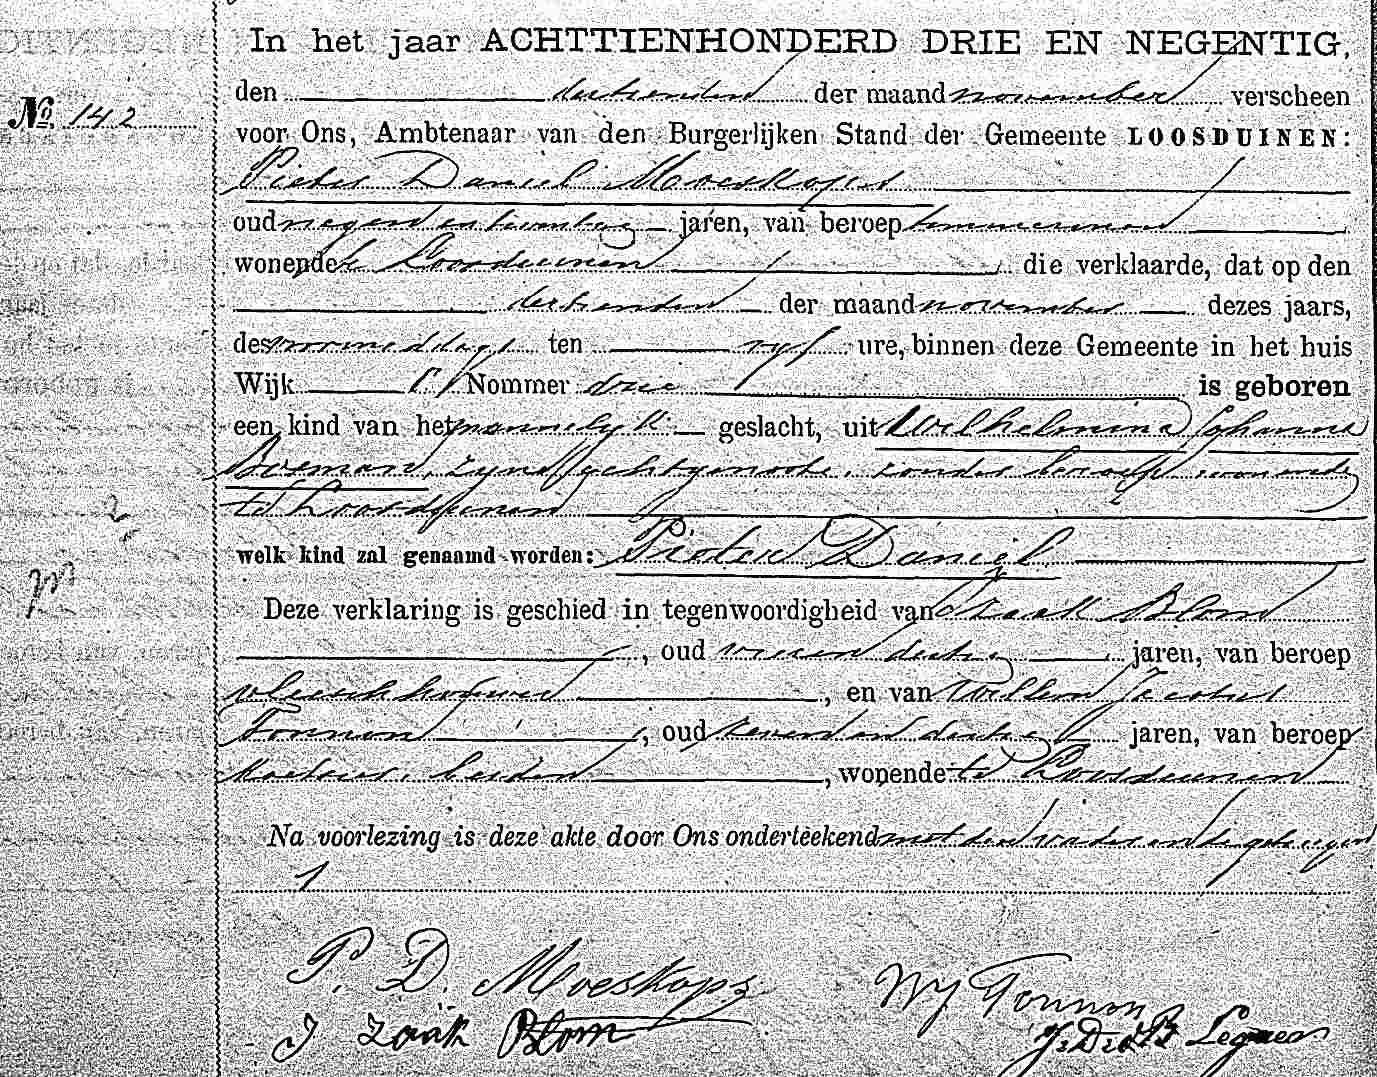 In het jaar ACHTTIENHONDERD DRIE EN NEGENTIG,
den dertienden der maand november verscheen
No. 142
voor Ons, Ambtenaar van den Burgerlijken Stand der Gemeente LOOSDUINEN:
Pieter Daniel Moeskops
oud negen en twintig jaren, van beroep timmerman
wonende te Loosduinen die verklaarde, dat op den
dertienden der maand november dezes jaars,
des voormiddags ten vijf ure, binnen deze Gemeente in het huis
Wijk Nommer drie is geboren
een kind van het mannelijk geslacht, uit Wilhelmina Johanna
Boeman, zijne echtgenoote, zonder beroep, wonende
te Loosduinen
welk kind zal genaamd worden: Pieter Daniel
Deze verklaring is geschied in tegenwoordigheid van Izaak Blom
, oud vier en dertig jaren, van beroep
vleeschhouwer, en van Willem
Tonnon, oud zeven en dertig jaren, van beroep
beiden, wonende te Loosduinen
Na voorlezing is deze akte door Ons onderteekend met den vader en de getuigen
P. D. Moeskops
Wj Tonnon
J Zaak Blom